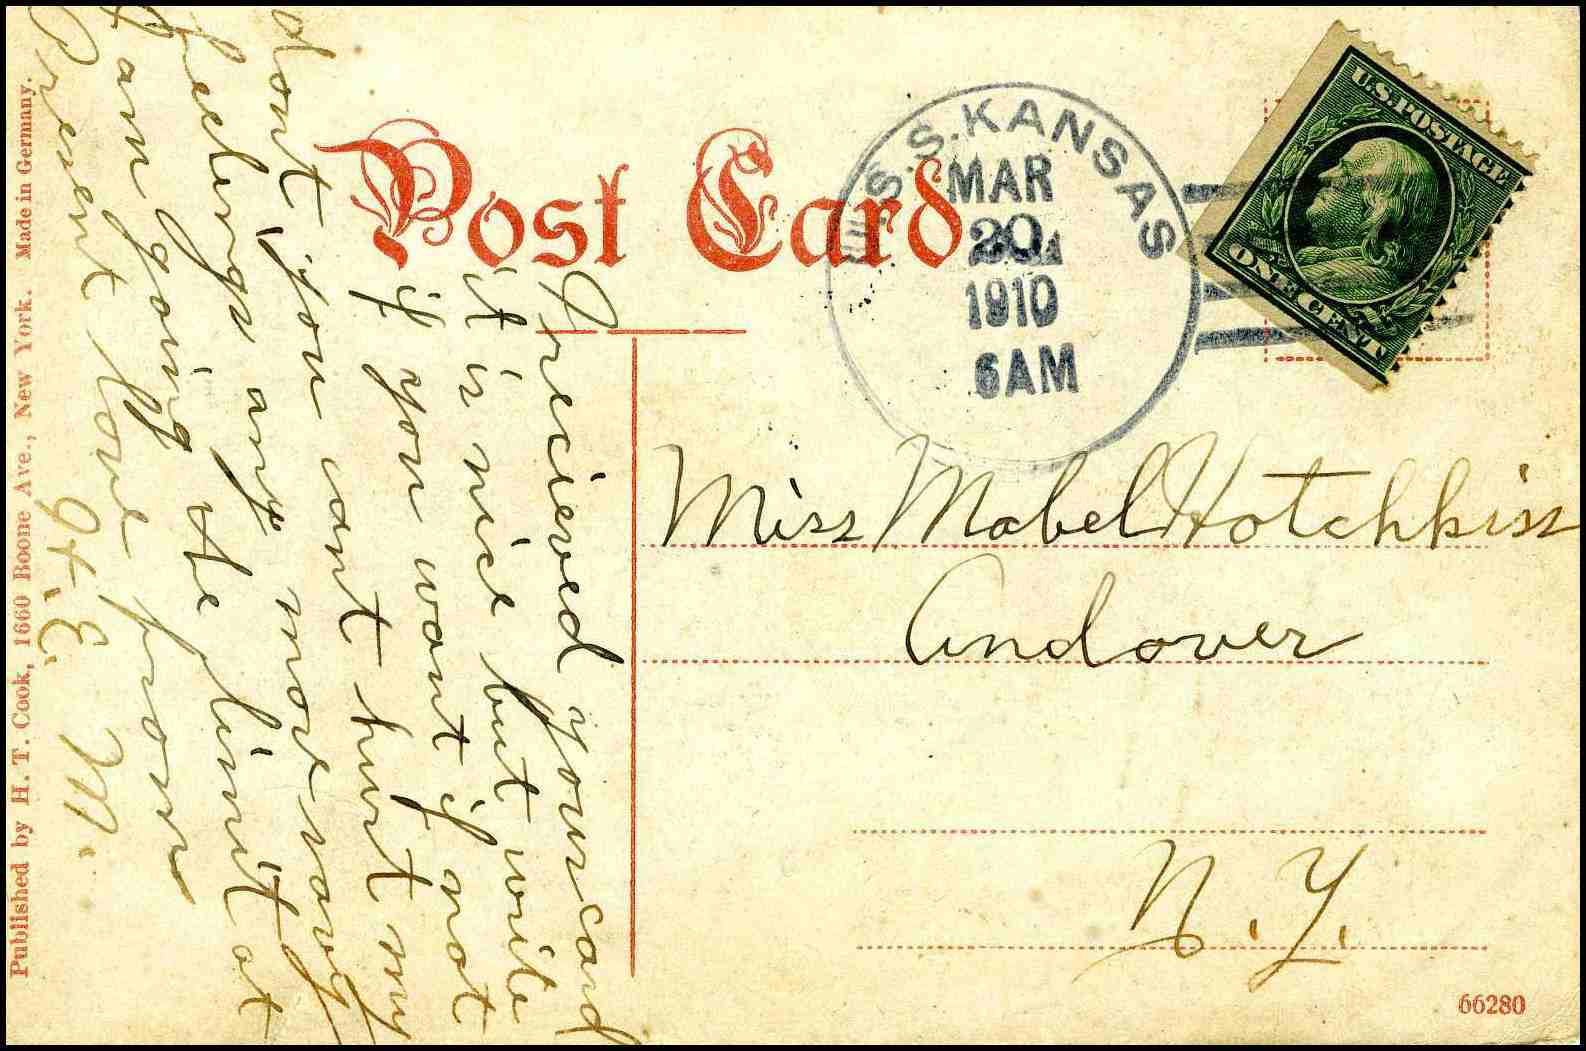 Post Card
U.S.S. KANSAS
MAR
20
1910
6AM
U.S. POSTAGE
ONE CENT
I recieved your card
it is nice but write
if you want if not
dont you cant hurt my
feelings any more savy
I am going the limit at
Present love from
H. E. M.
Miss Mabel Hotchkiss
Andover
N. Y.
Published by H. T. Cook, 1660 Boone Ave., New York. Made in Germany.
66280